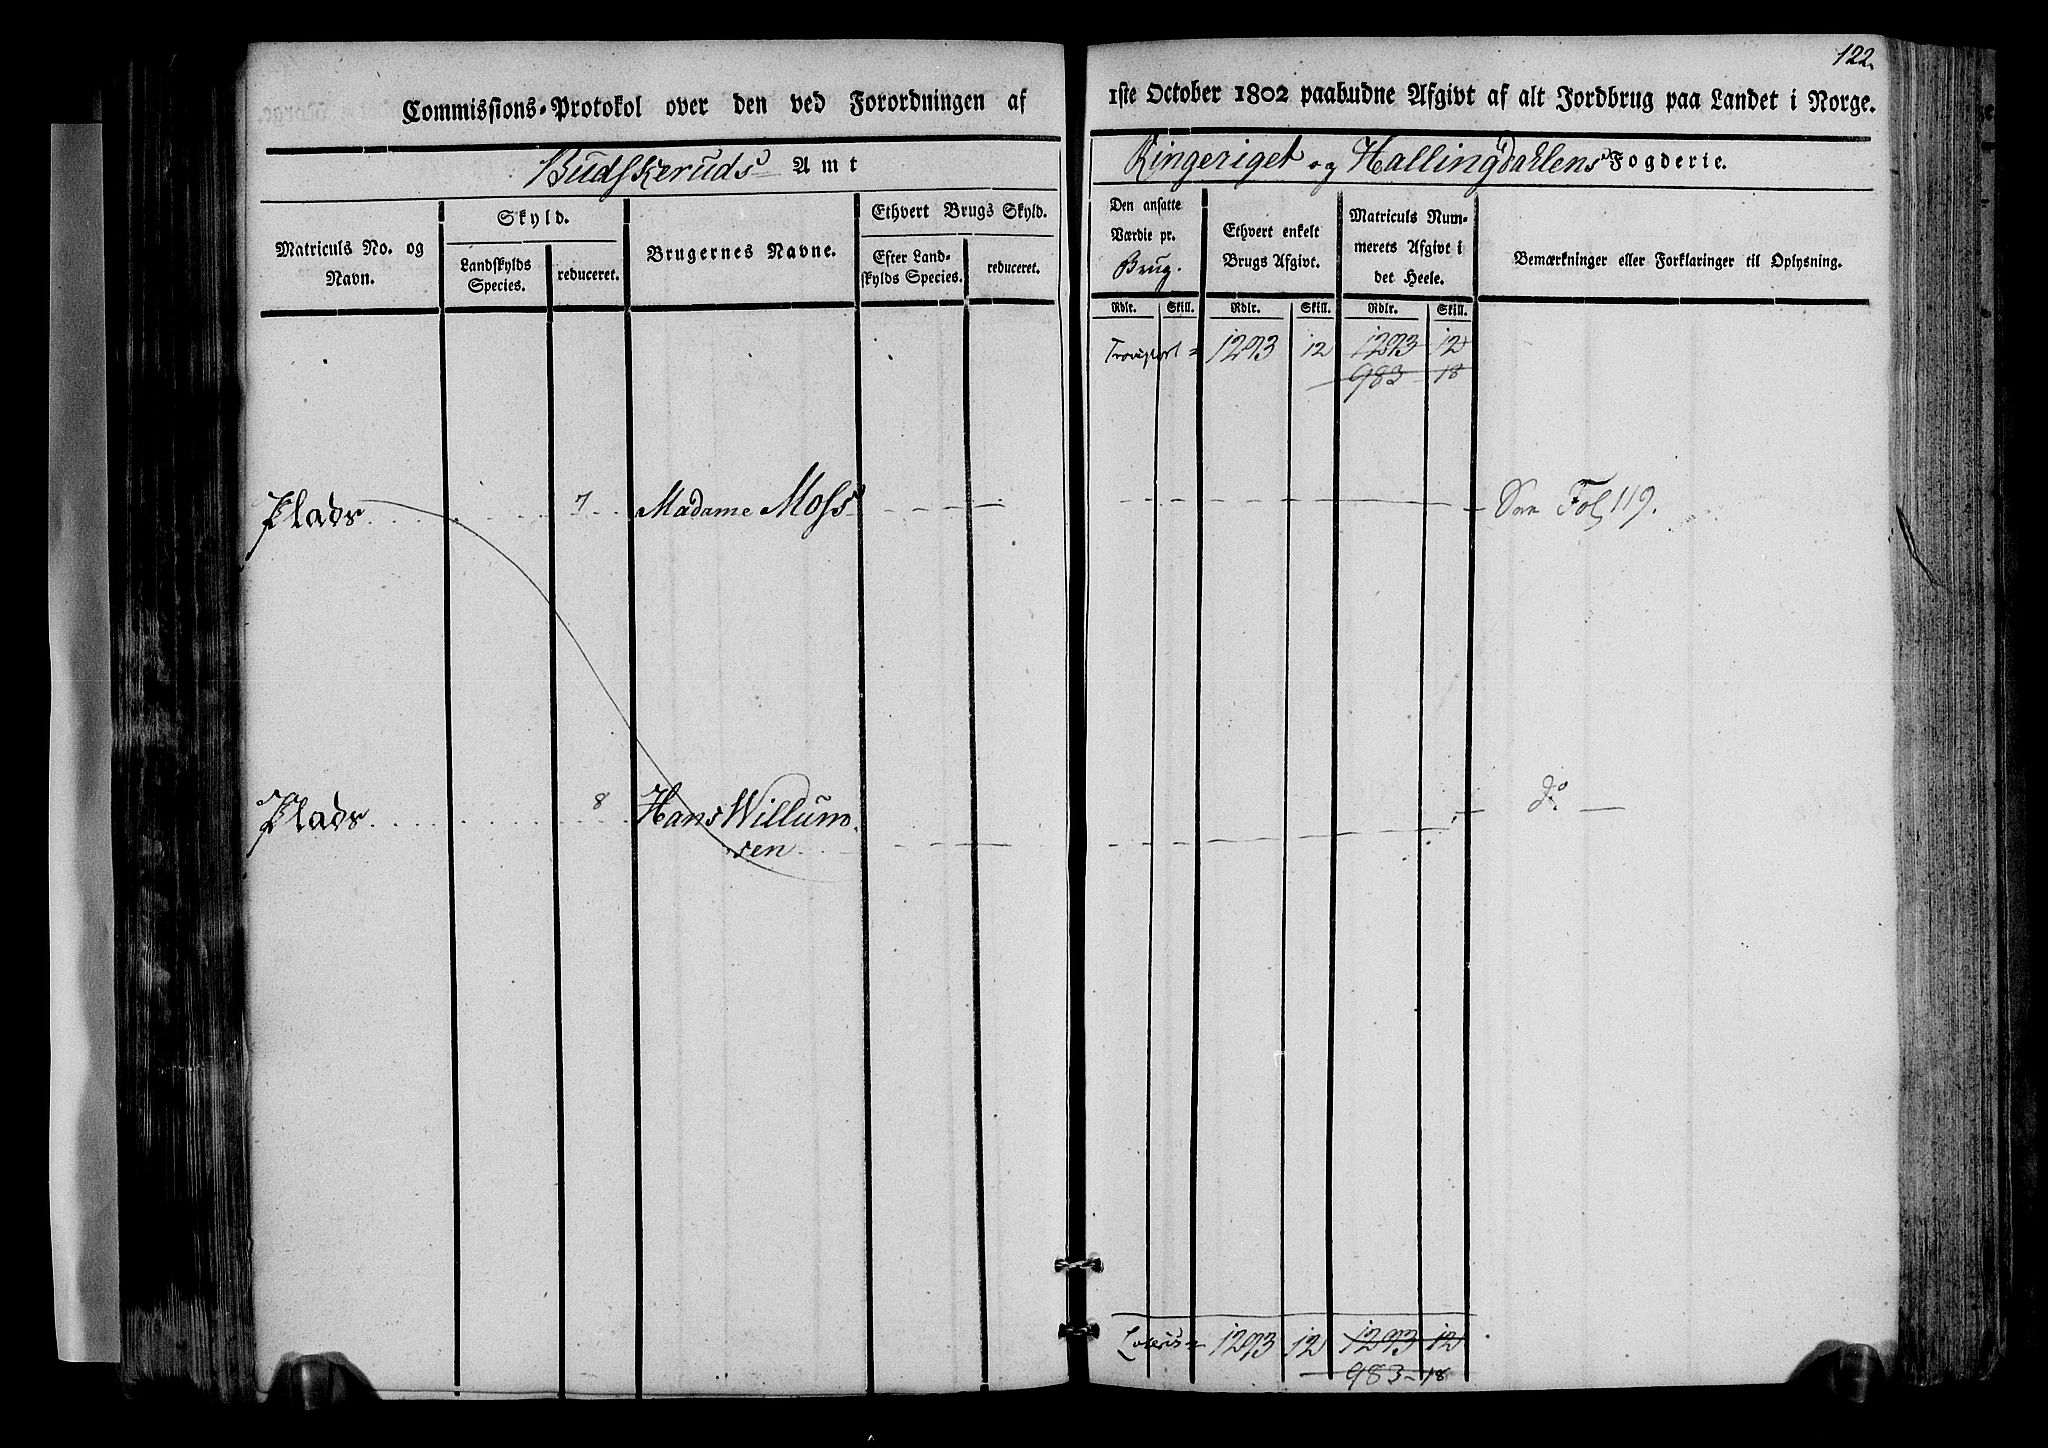 122.
Commissions-Protokol over den ved Forordningen af 1ste October 1802 paabudne Afgivt af alt Jordbrug paa Landet i Norge.
Budskeruds Amt Ringeriget og Hallingdahlens Fogderie.
Matriculs No. og Navn.
Skyld.
Landskylds Species.
reduceret.
Brugernes Navne.
Ethvert Brugs Skyld.
Efter Landskylds Species.
reduceret.
Den ansatte Værdie pr. Brug.
Ethvert enkelt Brugs Afgivt.
Matriculs Nummerets Afgivt i det Heele.
Bemærkninger eller Forklaringer til Oplysning.
Rdlr. Skill. Rdlr. Skill. Rdlr. Skill.
Transport 1293 12 1293 12
983 18
Plads 7 Madame Moss See Fol 119.
Plads 8 Hans Willum
sen do
Lateris 1293 12 1293 12
983 18